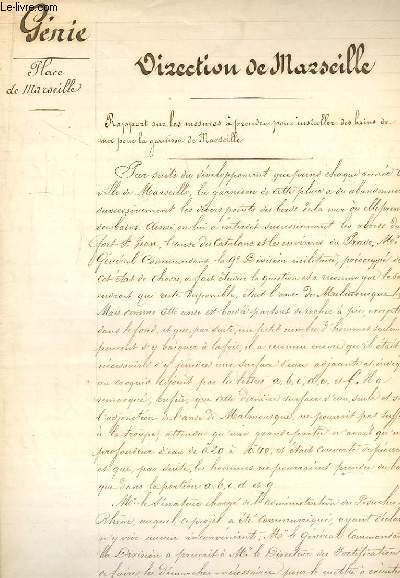 www.livre-rare-book.com
Génie
Place
de Marseille
Direction de Marseille
Rapport sur les mesures à prendre pour installer des bains de
mer pour la garnison de Marseille
Par suite du développement que prend chaque année la
ville de Marseille, la garnison de cette place a dû abandonner
successivement les divers points des bords de la mer où elle prenait
ses bains. Ainsi on lui a interdit successivement les abords du
fort St Jean, l'anse des Catalans et les environs du Prado. Mr le
Général Commandant la 9e Division militaire, préoccupé de
cet état de choses, a fait étudier la question et a reconnu que le
endroit qui reste disponible, était l'anse de Malmousque
Mais comme cette anse est bordée partout de roches à pic
dans le fond, et que, par suite, un petit nombre d'hommes seulement
peuvent s'y baigner à la fois, il a reconnu encore qu'il était
nécessaire d'y joindre une surface d'eau adjacente
au croquis ci-joint par les lettres a, b, c, d, e et f. Il a
remarqué, enfin, que cette dernière surface d'eau, seule et sans
l'adjonction de l'anse de Malmousque, ne pourrait pas suffire
à la troupe, attendu qu'une grande partie
profondeur d'eau de 0.20 à et était couverte de
et que, par suite, les hommes ne pourraient prendre de bains
que dans la portion a, b, c, d et g.
Mr le Sénateur chargé de l'administration des Bouches du
Rhône, auquel ce projet a été communiqué, ayant déclaré
n'y voir aucun inconvénient, Mr le Général Commandant
la Division a prescrit à Mr le Directeur des Fortifications
de faire les démarches nécessaires pour